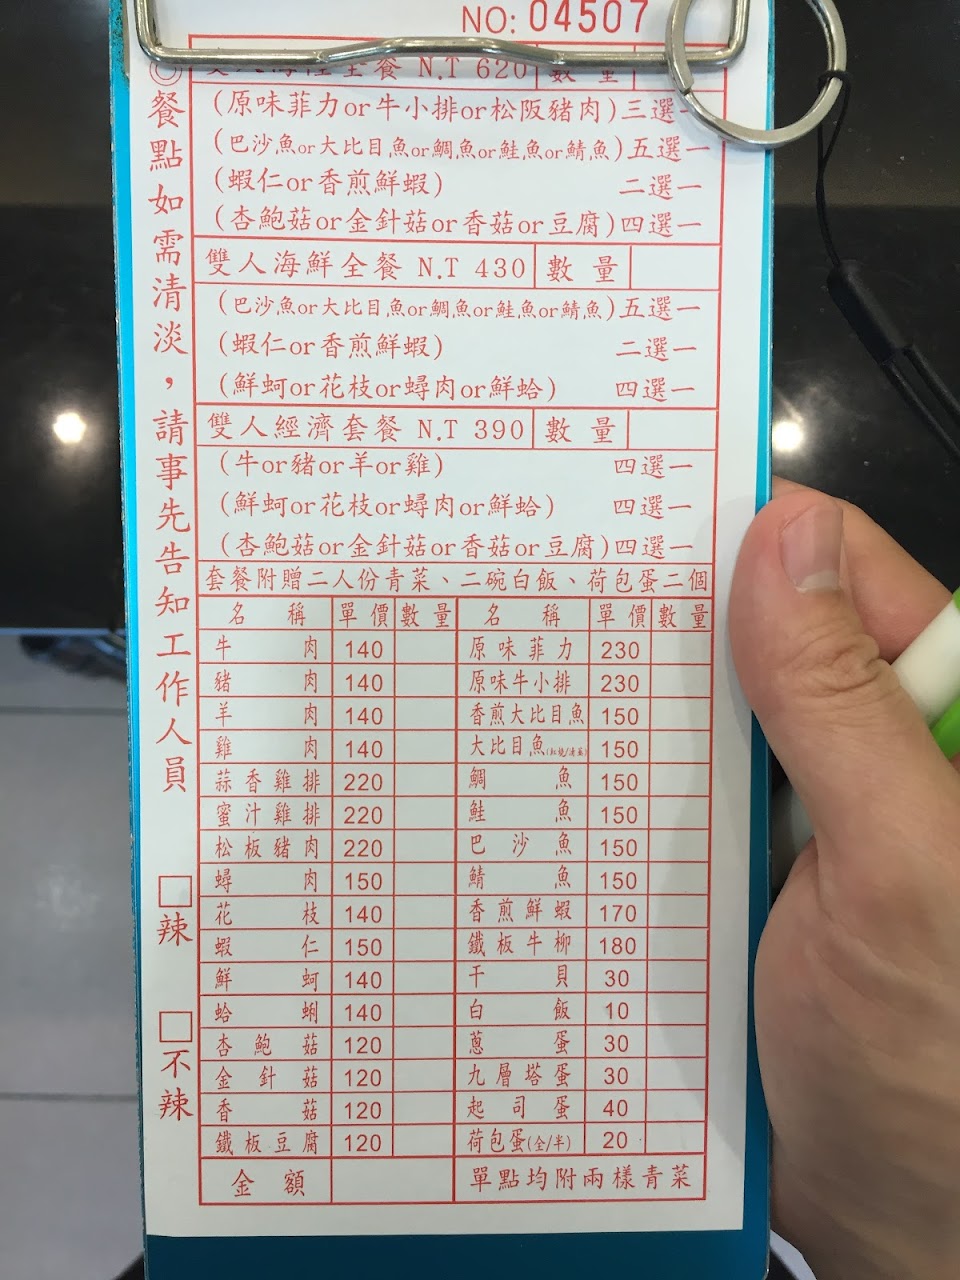 NO: 04507
全餐 N.T 620 數量
(原味菲力or牛小排or松阪豬肉)三選一
(巴沙魚or大比目魚or鯛魚or鮭魚or鯖魚)五選一
(蝦仁or香煎鮮蝦) 二選一
(杏鮑菇or金針菇or香菇or豆腐)四選一
雙人海鮮全餐 N.T 430 數量
(巴沙魚or大比目魚or鯛魚or鮭魚or鯖魚)五選一
(蝦仁or香煎鮮蝦) 二選一
(鮮蚵or花枝or蟳肉or鮮蛤) 四選一
雙人經濟套餐 N.T 390 數量
(牛or豬or羊or雞) 四選一
(鮮蚵or花枝or蟳肉or鮮蛤) 四選一
(杏鮑菇or金針菇or香菇or豆腐)四選一
套餐附贈二人份青菜、二碗白飯、荷包蛋二個
名稱 單價 數量 名稱 單價 數量
牛肉 140 原味菲力 230
豬肉 140 原味牛小排 230
羊肉 140 香煎大比目魚 150
雞肉 140 大比目魚(紅燒/清蒸) 150
蒜香雞排 220 鯛魚 150
蜜汁雞排 220 鮭魚 150
松板豬肉 220 巴沙魚 150
蟳肉 150 鯖魚 150
花枝 140 香煎鮮蝦 170
蝦仁 150 鐵板牛柳 180
鮮蚵 140 干貝 30
蛤蜊 140 白飯 10
杏鮑菇 120 蔥蛋 30
金針菇 120 九層塔蛋 30
香菇 120 起司蛋 40
鐵板豆腐 120 荷包蛋(全/半) 20
金額 單點均附兩樣青菜
◎餐點如需清淡，請事先告知工作人員
□辣
□不辣